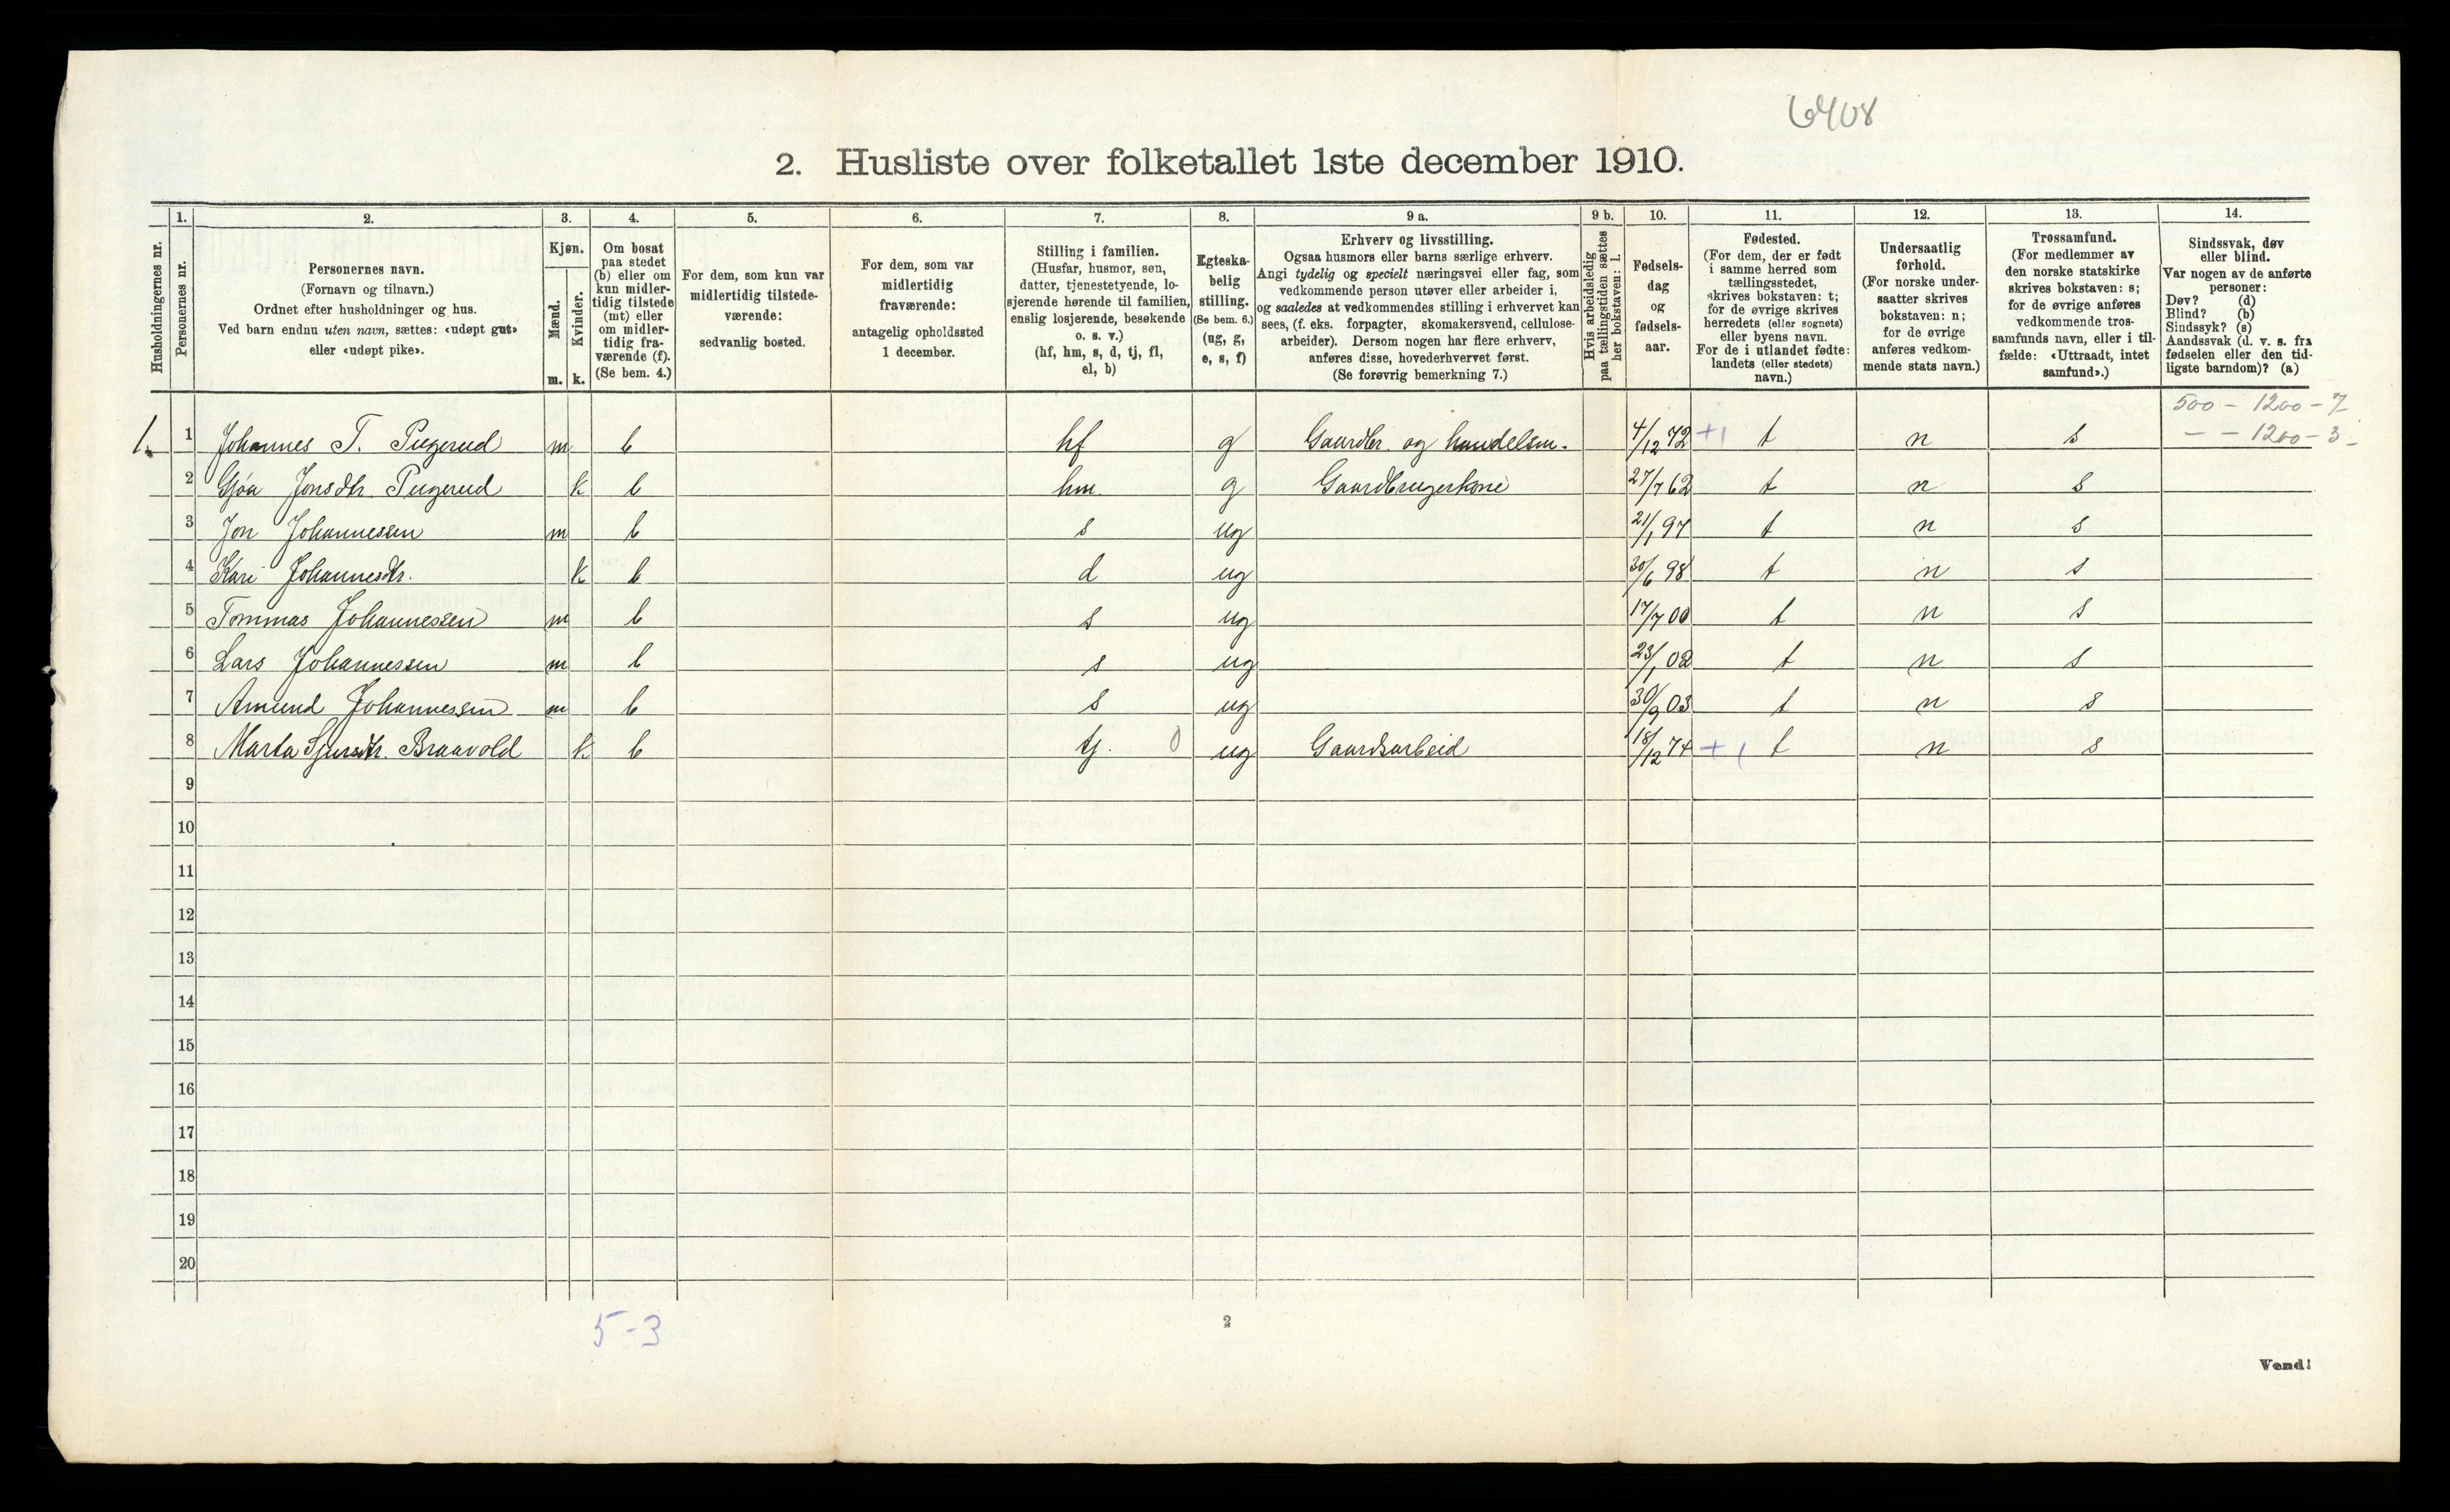 6408
2. Husliste over folketallet 1ste december 1910.
Husholdningernes nr.
1.
Personernes nr.
2.
Personernes navn.
(Fornavn og tilnavn.)
Ordnet efter husholdninger og hus.
Ved barn endnu uten navn, sættes: «udøpt gut»
eller «udøpt pike».
3.
Kjøn.
Mænd.
Kvinder.
m.
k.
4.
Om bosat
paa stedet
(b) eller om
kun midler-
tidig tilstede
(mt) eller
om midler-
tidig fra-
værende (f).
(Se bem. 4.)
5.
For dem, som kun var
midlertidig tilstede-
værende:
sedvanlig bosted.
6.
For dem, som var
midlertidig
fraværende:
antagelig opholdssted
1 december.
7.
Stilling i familien.
(Husfar, husmor, søn,
datter, tjenestetyende, lo-
sjerende hørende til familien,
enslig losjerende, besøkende
o. s. v.)
(hf, hm, s, d, tj, fl,
el, b)
8.
Egteska-
belig
stilling.
(Se bem. 6.)
(ug, g,
e, s, f)
9 a.
Erhverv og livsstilling.
Ogsaa husmors eller barns særlige erhverv.
Angi tydelig og specielt næringsvei eller fag, som
vedkommende person utøver eller arbeider i,
og saaledes at vedkommendes stilling i erhvervet kan
sees, (f. eks. forpagter, skomakersvend, cellulose-
arbeider). Dersom nogen har flere erhverv,
anføres disse, hovederhvervet først.
(Se forøvrig bemerkning 7.)
9 b.
Hvis arbeidsledig
paa tællingstiden sættes
her bokstaven: l.
10.
Fødsels-
dag
og
fødsels-
aar.
11.
Fødested.
(For dem, der er født
i samme herred som
tællingsstedet,
skrives bokstaven: t;
for de øvrige skrives
herredets (eller sognets)
eller byens navn.
For de i utlandet fødte:
landets (eller stedets)
navn.)
12.
Undersaatlig
forhold.
(For norske under-
saatter skrives
bokstaven: n;
for de øvrige
anføres vedkom-
mende stats navn.)
13.
Trossamfund.
(For medlemmer av
den norske statskirke
skrives bokstaven: s;
for de øvrige anføres
vedkommende tros-
samfunds navn, eller i til-
fælde: «Uttraadt, intet
samfund».)
14.
Sindssvak, døv
eller blind.
Var nogen av de anførte
personer:
Døv? (d)
Blind? (b)
Sindssyk? (s)
Aandssvak (d. v. s. fra
fødselen eller den tid-
ligste barndom)? (a)
500 - 1200 - 7
1. 1 Johannes T. Pugerud m b hf g Gaardbr. og handelsm. 4/12 72 +1 t n s - - 1200 - 3 -
2 Gjøa Jonsdtr. Pugerud k b hm. g Gaardbrugerkone 27/7 62 t n s
3 Jon Johannessen m b s ug 21/1 97 t n s
4 Kari Johannesdtr. k b d ug 30/6 98 t n s
5 Tommas Johannessen m b s ug 17/7 00 t n s
6 Lars Johannessen m b s ug 23/1 02 t n s
7 Amund Johannessen m b s ug 30/9 03 t n s
8 Marta Sjursdtr. Braavold k b tj. 0 ug Gaardsarbeid 18/12 74 +1 t n s
9
10
11
12
13
14
15
16
17
18
19
20
5-3
2
Vend!